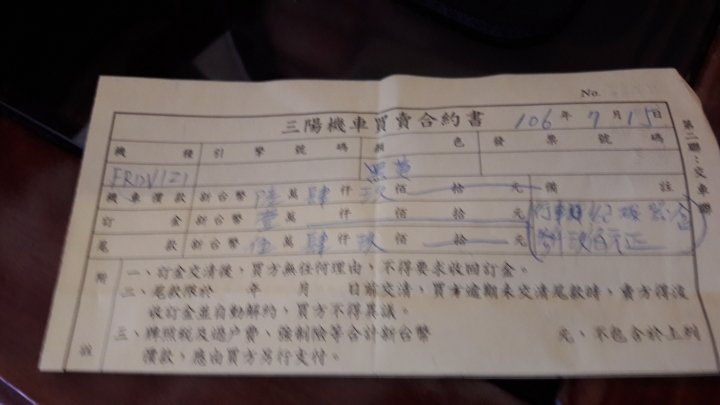 No.
三陽機車買賣合約書 106年7月15日
機種 引擎號碼 顏色 發票號碼
黑黃
機車價款 新台幣 陸萬肆仟玖佰 拾 元 備註
訂金 新台幣 壹萬 仟 佰 拾 元
尾款 新台幣 伍萬肆仟玖佰 拾 元
第二聯:交車聯
附註
一、訂金交清後,買方無任何理由,不得要求收回訂金。
二、尾款限於 年 月 日前交清,買方逾期未交清尾款時,賣方得沒
收訂金並自動解約,買方不得異議。
三、牌照稅及過戶費、強制險等合計新台幣 元,不包含於上列
價款,應由買方另行支付。